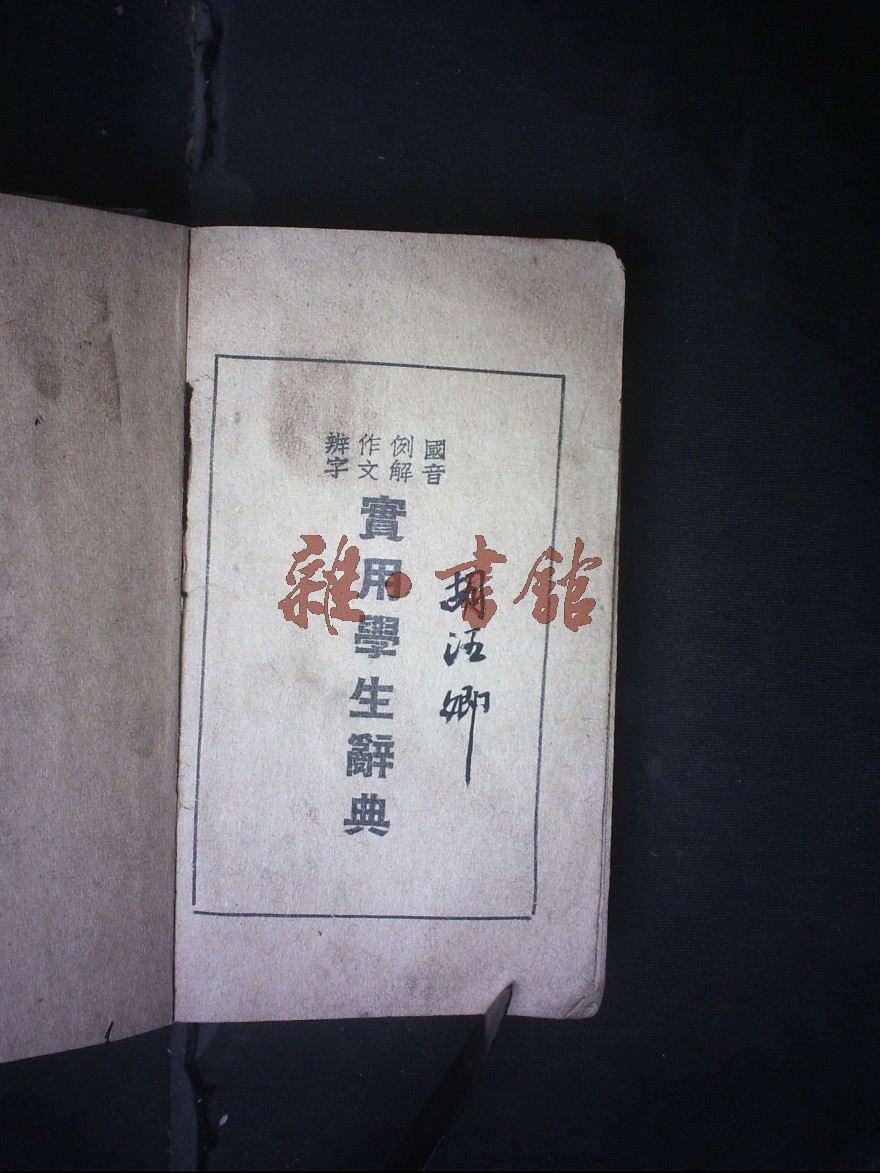 國音
例解
作文
辨字
實用學生辭典
汪卿
雜·書館